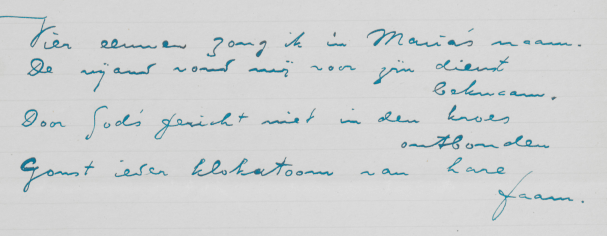 Vier eeuwen zong ik in Maria's naam.
De vijand vond mij voor zijn dienst
bekwaam.
Door Gods gericht niet in den kroes
ontbonden
Gonst ieder klokatoom van hare
faam.